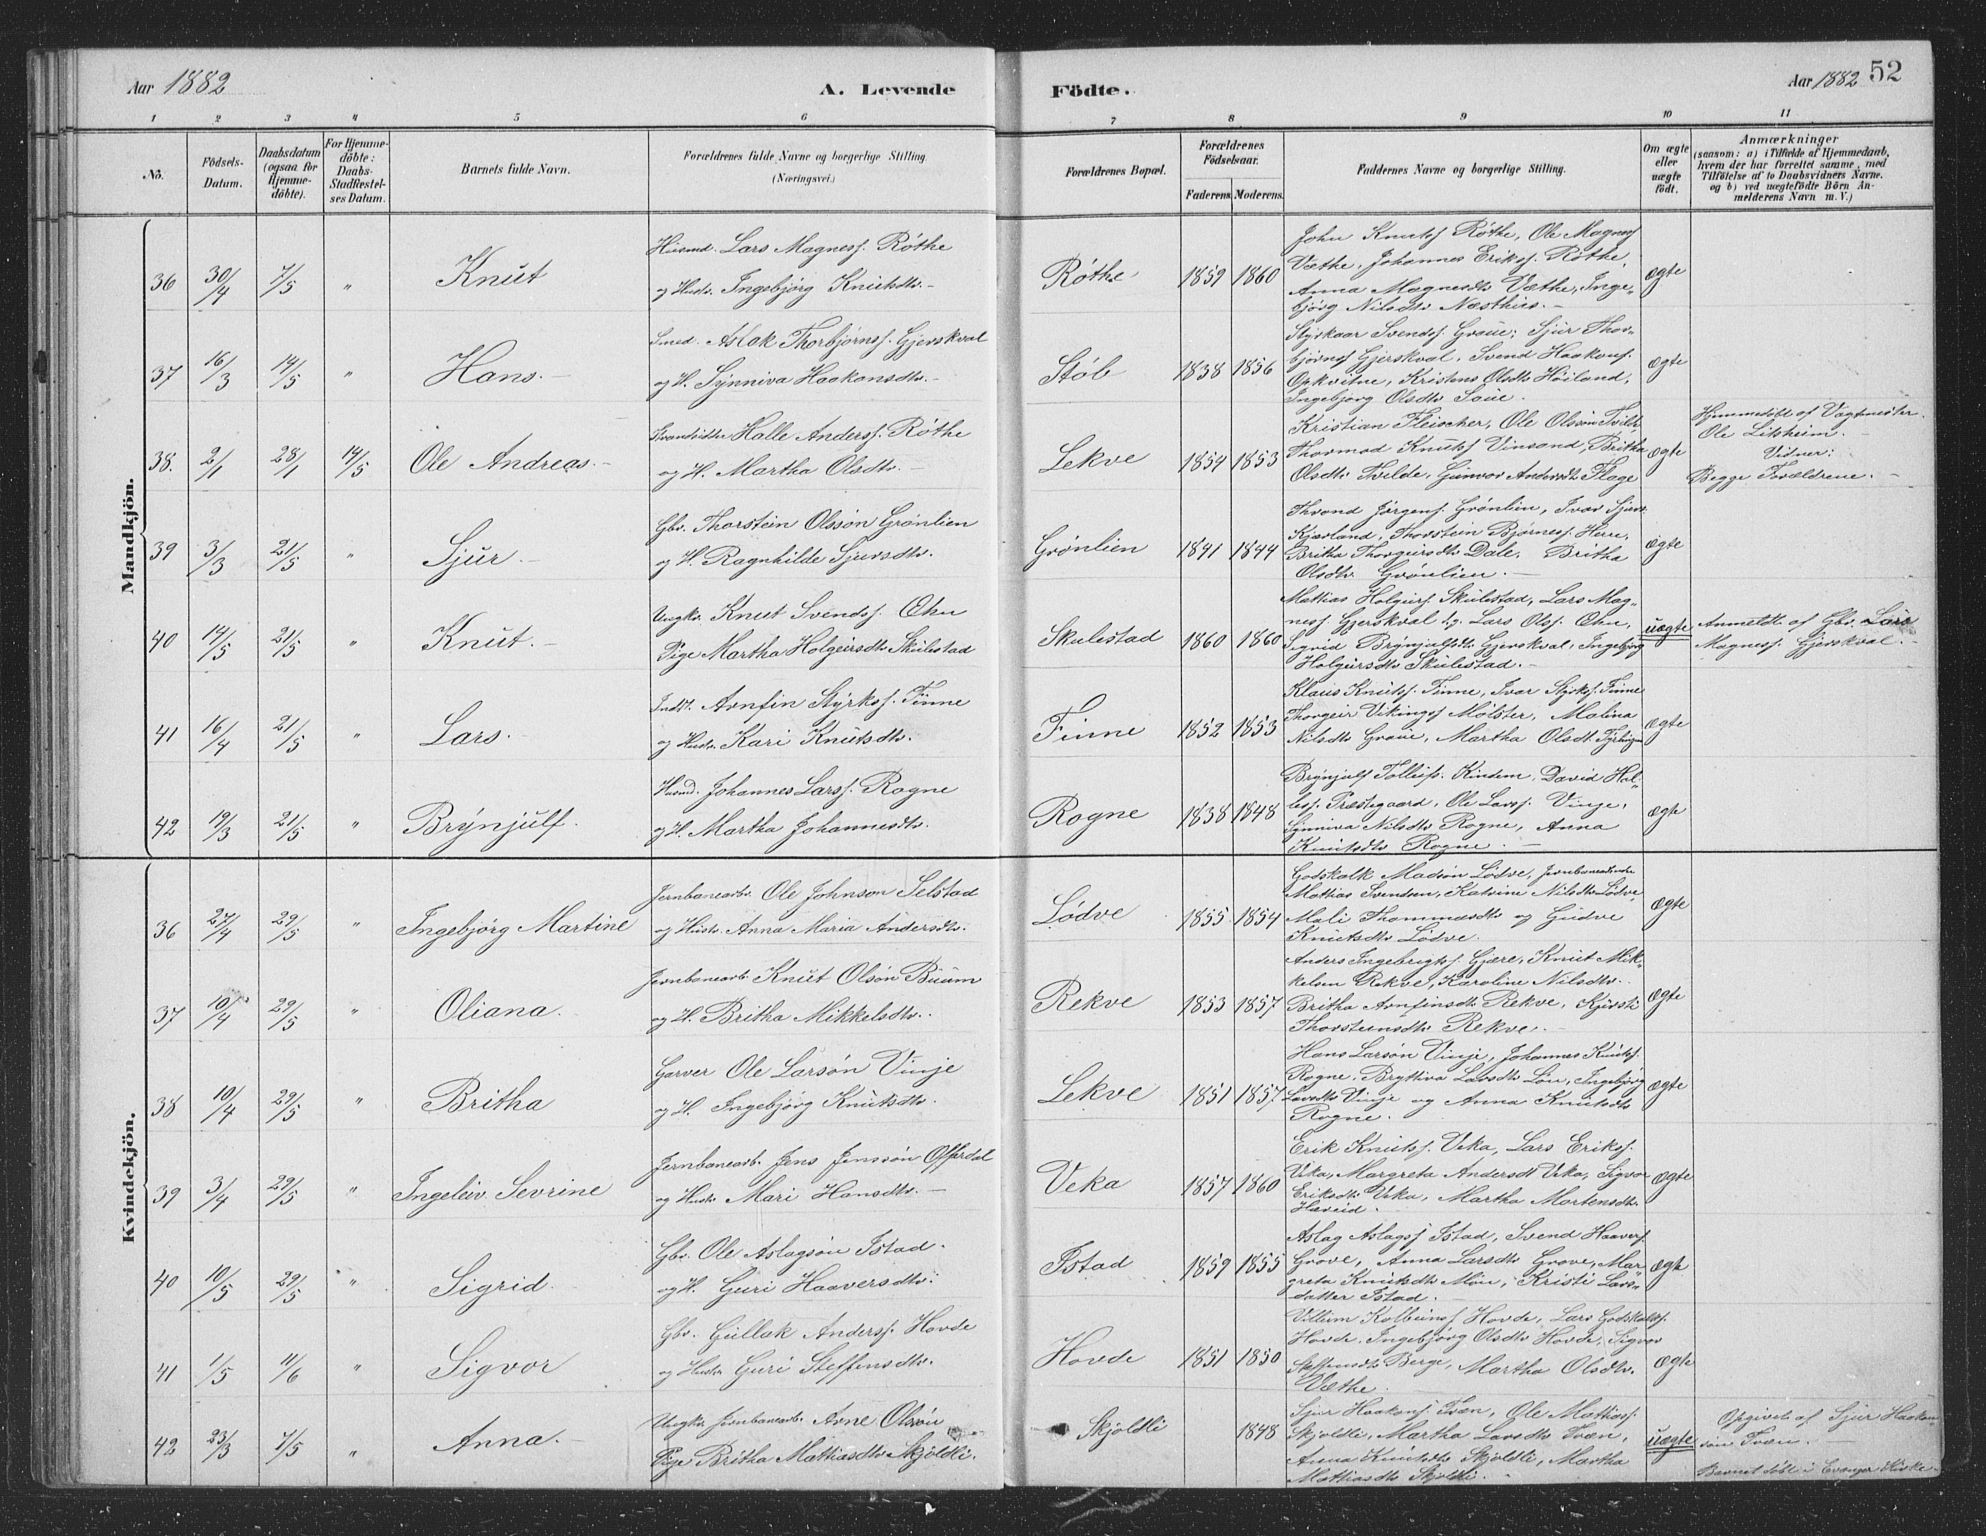 Aar 1882
A. Levende
Födte.
Aar 1882
52
1 2 3 4 5 6 7 8 9 10 11
No.
Födsels-Datum.
Daabsdatum (ogsaa for Hjemmedöbte).
For Hjemmedöbte: Daabs-Stadfæstelses Datum.
Barnets fulde Navn.
Forældrenes fulde Navne og borgerlige Stilling.
(Næringsvei.)
Forældrenes Bopæl.
Forældrenes Födselsaar.
Faderens. Moderens.
Faddernes Navne og borgerlige Stilling.
Om ægte eller uægte födt.
Anmærkninger
(saasom: a) i Tilfælde af Hjemmedaab, hvem der har forrettet samme, med Tilföielse af to Daabsvidners Navne. og b) ved uægtefödte Börn Anmelderens Navn m. V.)
Mandkjön.
36 30/4 7/5 " Knut
Husmd. Lars Magness. Röthe
og Hustr. Ingebjörg Knutsdtr. -
Röthe 1859 1860
John Knutss Röthe, Ole Magness
Væthe, Johannes Erikss. Röthe,
Anna Magnesdtr Væthe, Inge-
björg Nilsdtr Næsthus. -
ægte
37 16/3 14/5 " Hans. -
Smed. Aslak Thorbjörnss. Gjerskval
og H. Synniva Haakonsdtr. -
Stöb 1838 1856
Styrkaar Svendss. Graue, Sjur Thor-
björnss Gjerskval, Svend Haakons.
Opkvitne, Kristens Olsdtr Höiland,
Ingebjörg Olsdtr Saue.
ægte
38. 2/1 28/1 14/5 Ole Andreas. -
Strandsidder Halle Anderss. Röthe
og H. Martha Olsdtr.
Lekve 1854 1853
Kristian Fleischer, Ole Olssön Tvilde
Thormod Knutss Vinsand, Britha
Olsdtr Tvilde, Gunvor Andersdtr Flage
ægte
Hjemmedöbt af Vagtmester
Ole Litsheim. -
Vidner:
Begge Forældrene. -
39 3/3 21/5 " Sjur. -
Gbr. Thorstein Olssön Grönlien
og H. Ragnhilde Sjursdtr.
Grönlien 1841 1844
Thrond Jörgens. Grönlien, Ivar Sjurs
Kjærland, Thorstein Björness. Herre,
Britha Thorgeirsdtr Dale, Britha
Olsdtr. Grönlien. -
ægte
40 14/5 21/5 " Knut. -
Ungkr. Knut Svendss. Ohn
Pige Martha Holgeirsdtr Skulestad
Skulestad 1860 1860
Mathias Holgeirss Skulestad, Lars Mag-
ness Gjerskval, Lars Olss. Ohn,
Sigrid Brynjulfsdtr Gjerskval, Ingebjörg
Holgeirsdtr Skulestad. -
uægte
Anmeldt af Gbr. Lars
Magness. Gjerskval. -
41 16/4 21/5 " Lars. -
Indst. Arnfin Styrkss. Finne
og Hustr. Kari Knutsdtr.
Finne 1852 1853
Klaus Knutss. Finne, Ivar Styrkss. Finne
Thorgeir Vikingss Mölster, Malina
Nilsdtr Graue, Martha Olsdt.
ægte
42 19/3 21/5 " Brynjulf.
Husmd. Johannes Larss. Rogne
og H. Martha Johannesdtr.
Rogne 1838 1848
Brynjulf Tolleifs. Kindem, David Hal-
less. Præstegaard, Ole Larss. Vinje,
Synniva Nilsdtr Rogne, Anna
Knutsdtr Rogne. -
ægte
Kvindekjön.
36 27/4 29/5 " Ingebjörg Martine
Jernbanearb. Ole Johnson Selstad
og Hustr. Anna Maria Andersdtr.
Lödve 1855 1854
Godskalk Madsön Lödve,
Mathias Svendsen, Katrine Nilsdtr Lödve
Mali Thommasdtr og Gudve
Knutsdtr Lödve.
ægte
37 10/4 29/5 " Oliana.
Jernbanearb. Knut Olsön Buum
og H. Britha Mikkelsdtr.
Rekve 1853 1857
Anders Ingebrigtss. Gjære, Knut Mik-
kelsen Rekve, Karoline Nilsdtr.
Britha Arnfinsdtr Rekve, Kjersti
Thorsteinsdtr Rekve.
ægte
38 10/4 29/5 " Britha
Garver Ole Larsön Vinje
og H. Ingebjörg Knutsdtr.
Lekve 1851 1857
Hans Larsön Vinje, Johannes Knutss.
Rogne, Bryttiva Larsdtr Lön, Ingebjörg
Larsdtr Vinje og Anna Knutsdtr
Rogne.
ægte
39 3/4 29/5 " Ingeleiv Sevrine
Jernbanearb. Jens Jenssön Offerdal
og Hustr. Mari Hansdtr. -
Veka 1857 1860
Erik Knutss. Veka, Lars Erikss.
Veka, Margreta Andersdt Veka, Sigvor
Eriksdtr Veka, Martha Mortensdtr
Hæreid.
ægte
40 10/5 29/5 " Sigrid.
Gbr. Ole Aslagsön Istad.
og H. Guri Haaversdtr.
Istad 1859 1855
Aslag Aslagss Istad, Svend Haavers
Grove, Anna Larsdtr Grove, Mar-
greta Knutsdtr Möen, Kristi Lars-
datter Istad.
ægte
41 1/5 11/6 " Sigvor
Gbr. Gullak Anderss. Hovde
og Hustr. Guri Steffensdtr.
Hovde 1851 1850
Villum Kolbeinss Hovde, Lars Godskalkss
Hovde, Ingebjörg Olsdtr Hovde, Sigvor
Steffensdtr Berge, Martha Olsdtr.
Væthe.
ægte
42 23/3 7/5 " Anna. -
Ungkr. Jernbanearb. Arne Olsön
Pige Britha Mathiasdtr Skjöldli.
Skjöldli 1848
Sjur Haakonss Tvæn, Ole Mathiass.
Skjöldli, Martha Larsdtr Tvæn,
Anna Knutsdtr Skjöldli, Martha
Mathiasdtr Skjöldli.
uægte
Opgivet af Sjur Haakon-
sön Tvæn. -
Barnet döbt i Evanger Kirke.